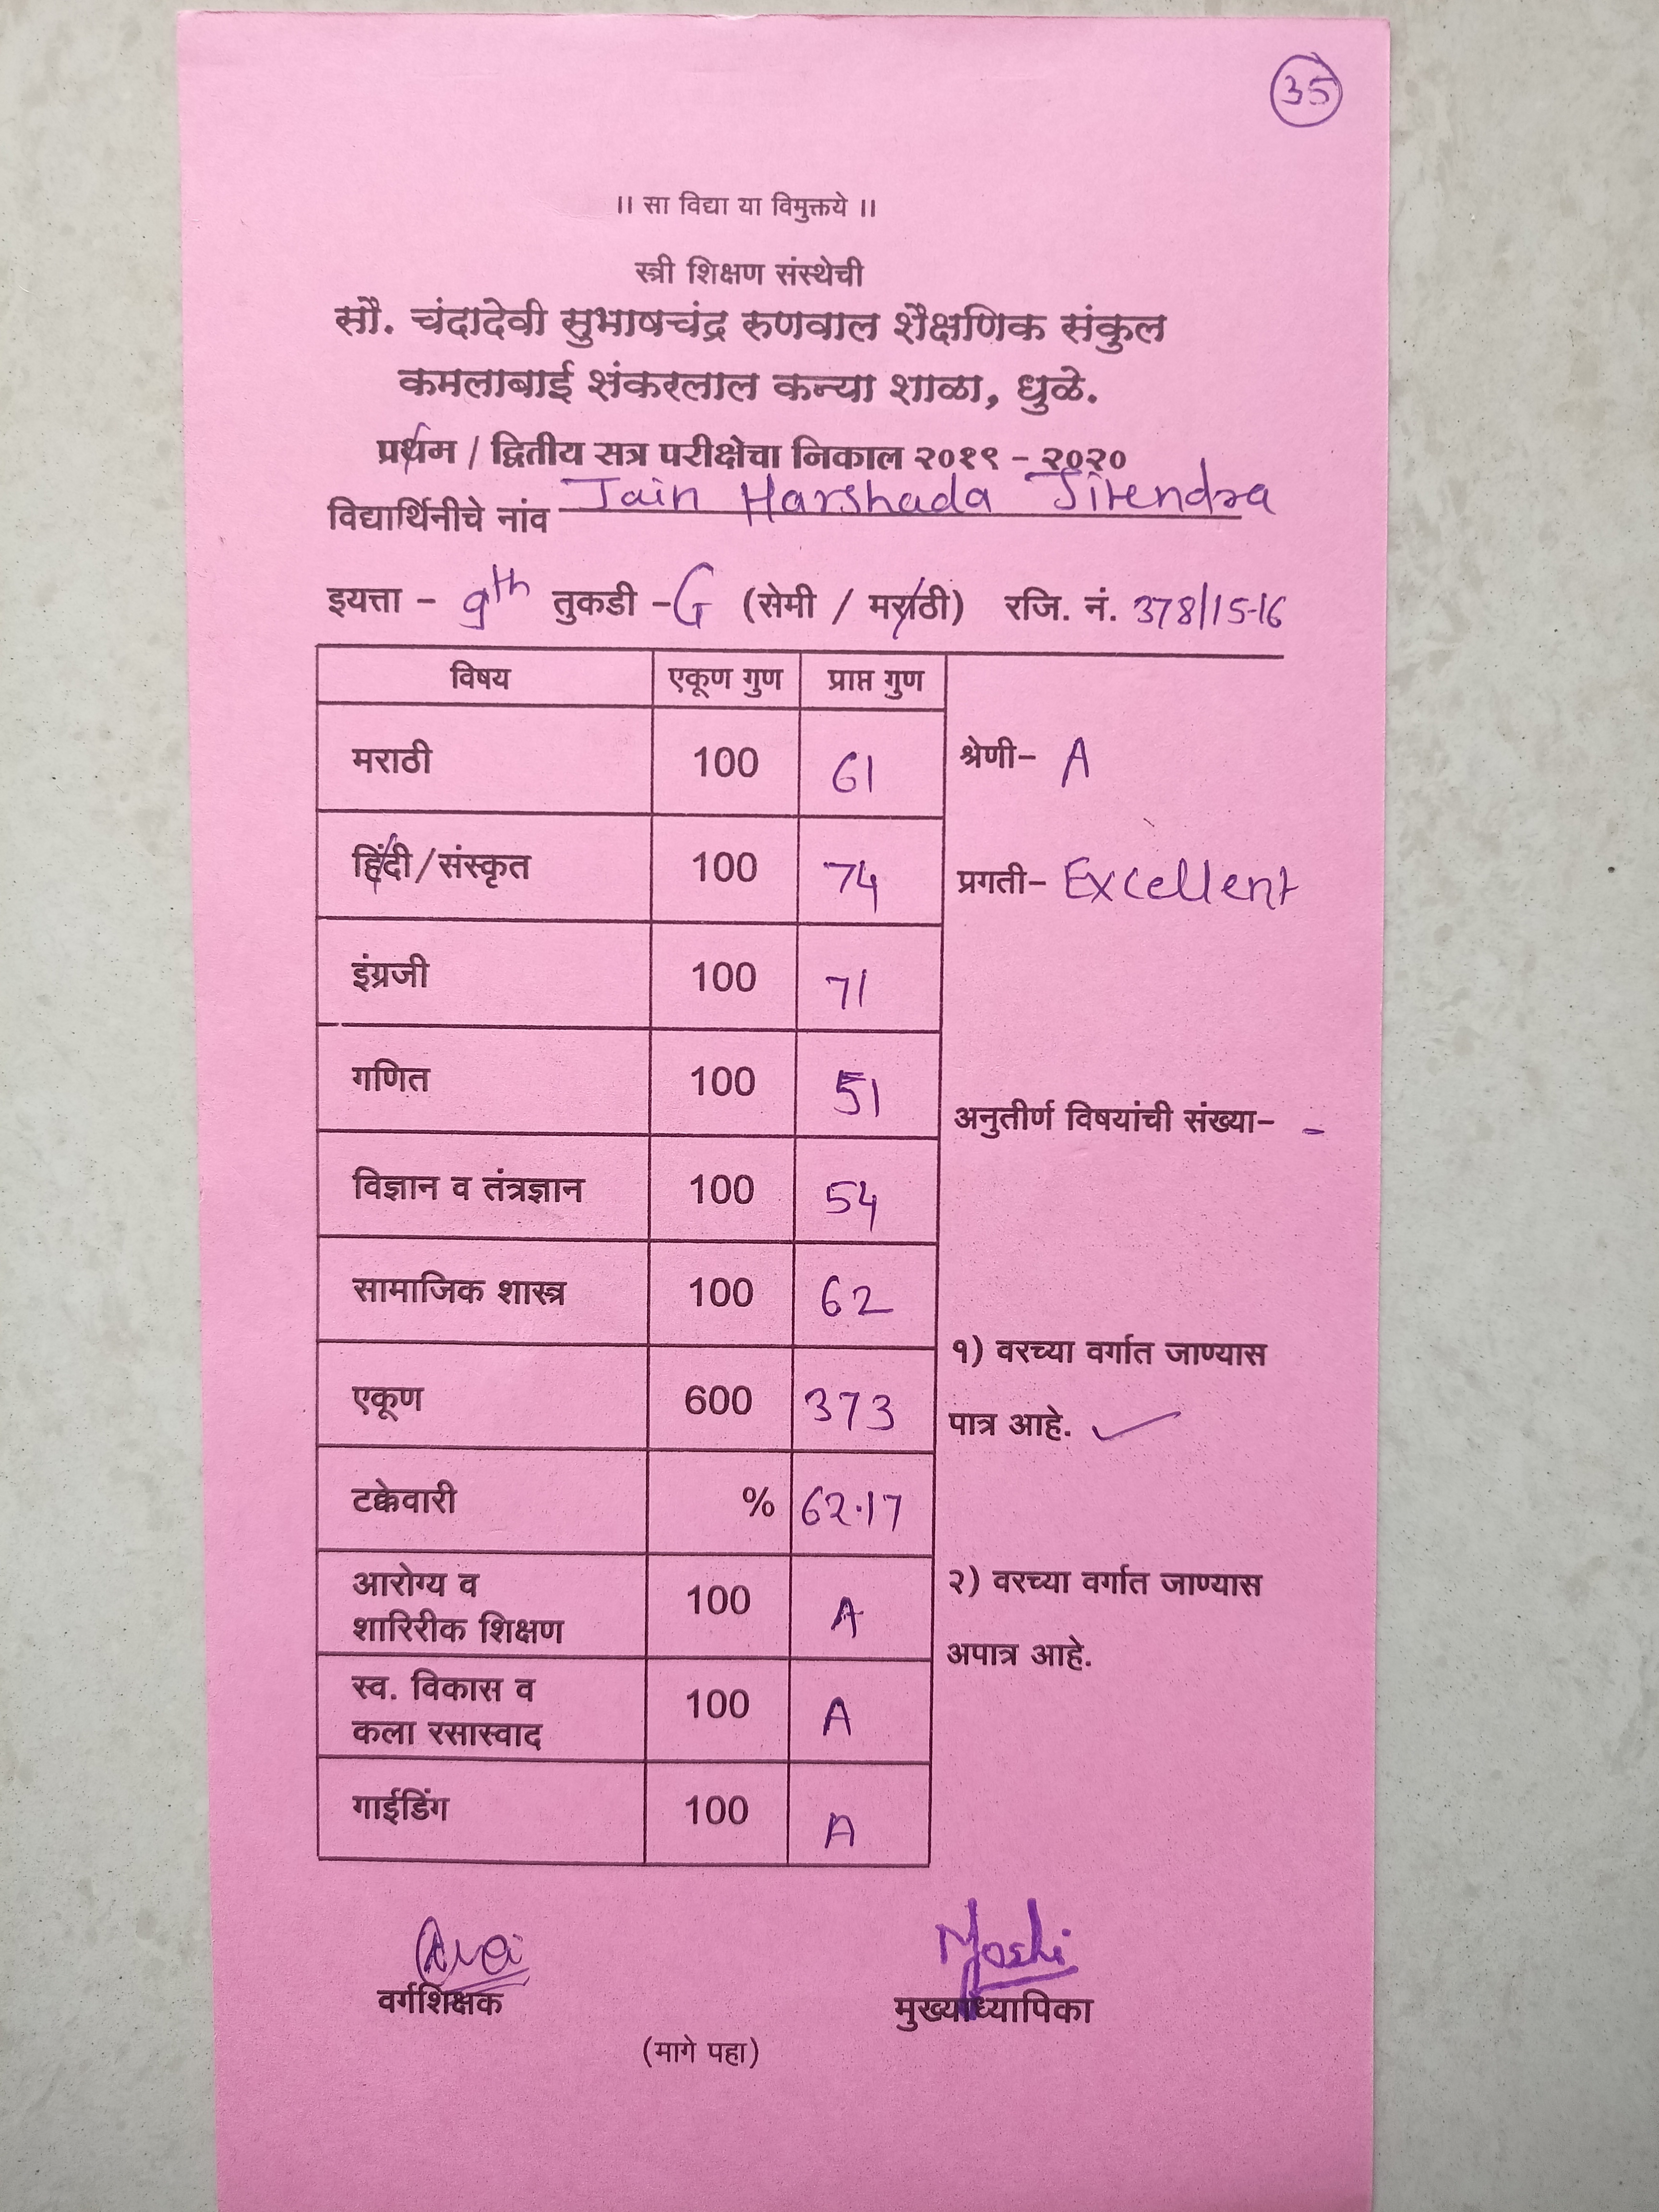 35
।। सा विद्या या विमुक्तये ।।
स्त्री शिक्षण संस्थेची
सौ. चंदादेवी सुभाषचंद्र रुणवाल शैक्षणिक संकुल
कमलाबाई शंकरलाल कन्या शाळा, धुळे.
प्रथम / द्वितीय सत्र परीक्षेचा निकाल २०१९ - २०२०
विद्यार्थिनीचे नांव Jain Harshada Jitendra
इयत्ता - 9th तुकडी - G (सेमी / मराठी) रजि. नं. 378/15-16
विषय एकूण गुण प्राप्त गुण
मराठी 100 61 श्रेणी- A
हिंदी/संस्कृत 100 74 प्रगती- Excellent
इंग्रजी 100 71
गणित 100 51 अनुतीर्ण विषयांची संख्या- -
विज्ञान व तंत्रज्ञान 100 54
सामाजिक शास्त्र 100 62
१) वरच्या वर्गात जाण्यास
एकूण 600 373 पात्र आहे. ✓
टक्केवारी % 62.17
आरोग्य व
शारिरीक शिक्षण 100 A
२) वरच्या वर्गात जाण्यास
अपात्र आहे.
स्व. विकास व
कला रसास्वाद 100 A
गाईडिंग 100 A
वर्गशिक्षक मुख्याध्यापिका
(मागे पहा)